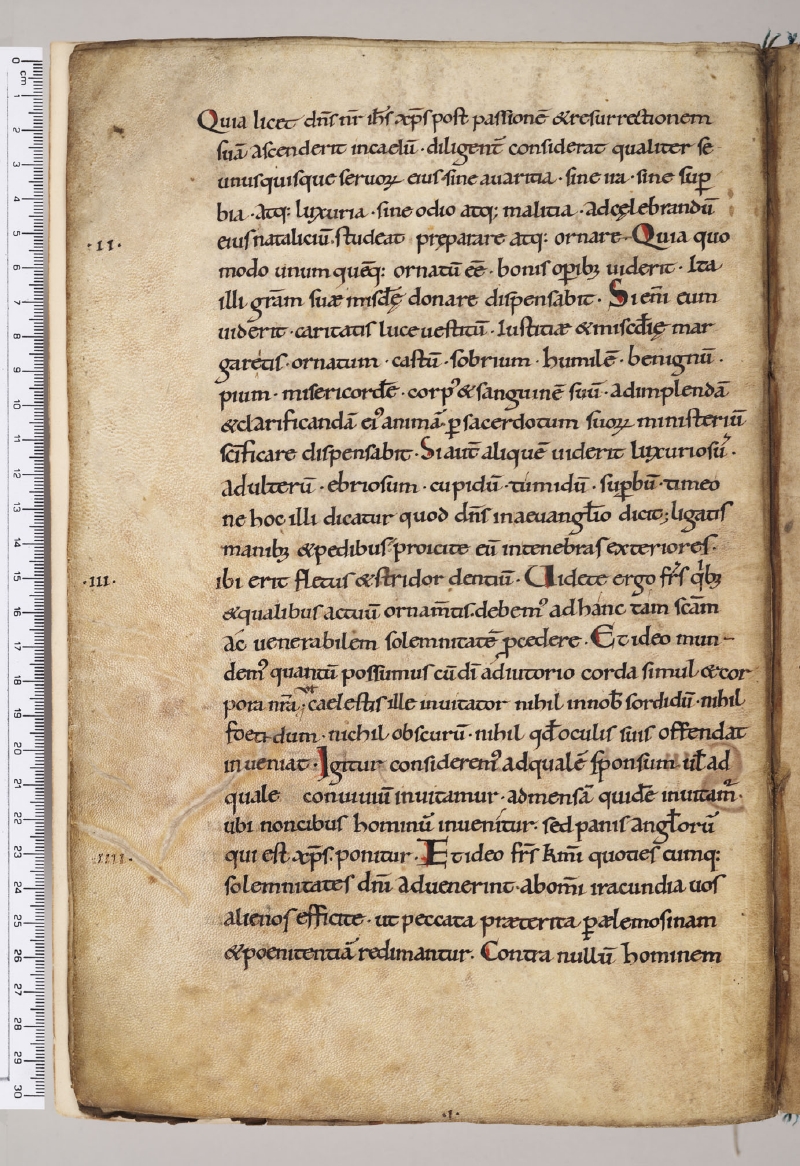 Quia licet dn̄s nr̄ ih̄s xp̄s post passionē & resurrectionem
suā ascenderit in caelū · diligent̄ considerat qualiter se
unusquisque seruoꝝ eius sine auaritia · sine ira · sine suꝑ
bia · atq: luxuria · sine odio atq; malitia · ad cęlebrandū
·II· eius nataliciū · studeat pręparare atq: ornare · Quia quo
modo unum quēq: ornatū eē · bonis opibꝫ uiderit · Ita
illi grām suæ misdę̄ donare dispensabit · Si eni̅ eum
uiderit · caritatis luce uestitū · Iustitiæ & miscdīę mar
garetis · ornatum · castū · sobrium · humilē · benignū ·
pium · misericordē · corpꝰ & sanguinē suū · ad implendā
& clarificandā eiꝰ animā · ꝑ sacerdotum suoꝝ ministeriū
sc̄ificare dispensabit · Si aut̄ aliquē uiderit luxuriosū ·
adulterū · ebriosum · cupidū · tumidū · suꝑbū · timeo
ne hoc illi dicatur quod dn̄s in aeuanglīo dicit; ligatis
manibꝫ & pedibus proicite eū in tenebras exteriores ·
·III· ibi erit fletus & stridor dentiū · Uidete ergo fr̄s qi̇bꝫ
& qualibus actuū ornam̄tis · debemꝰ ad hanc tam sc̄am
ac uenerabilem solemnitatē ꝓcedere · Et ideo mun-
demꝰ quantū possumus cū dī adiutorio corda simul & cor
pora nr̄a · ut caelestis ille inuitator nihil in nob̄ sordidū · nihil
foetidum · nichil obscurū · nihil qd̄ oculis suis offendat
inueniat · Igitur considerem̄ꝰ ad qualē sponsum · ut̄ ad
quale conuiuiū inuitamur · ad mensā quidē inuitam̄ ·
ubi non cibus hominū inuenitur · sed panis angl̄orū
·IIII· qui est · xp̄s · ponitur · Et ideo fr̄s km̄i quoties cumq:
solemnitates dn̄i aduenerint · ab om̄i iracundia uos
alienos efficite · ut peccata præterita ꝑ ælemosinam
& poenitentiā redimantur · Contra nullū hominem
·I·